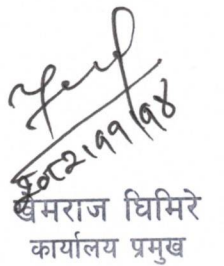 २०८२।११।१४
खेमराज घिमिरे
कार्यालय प्रमुख